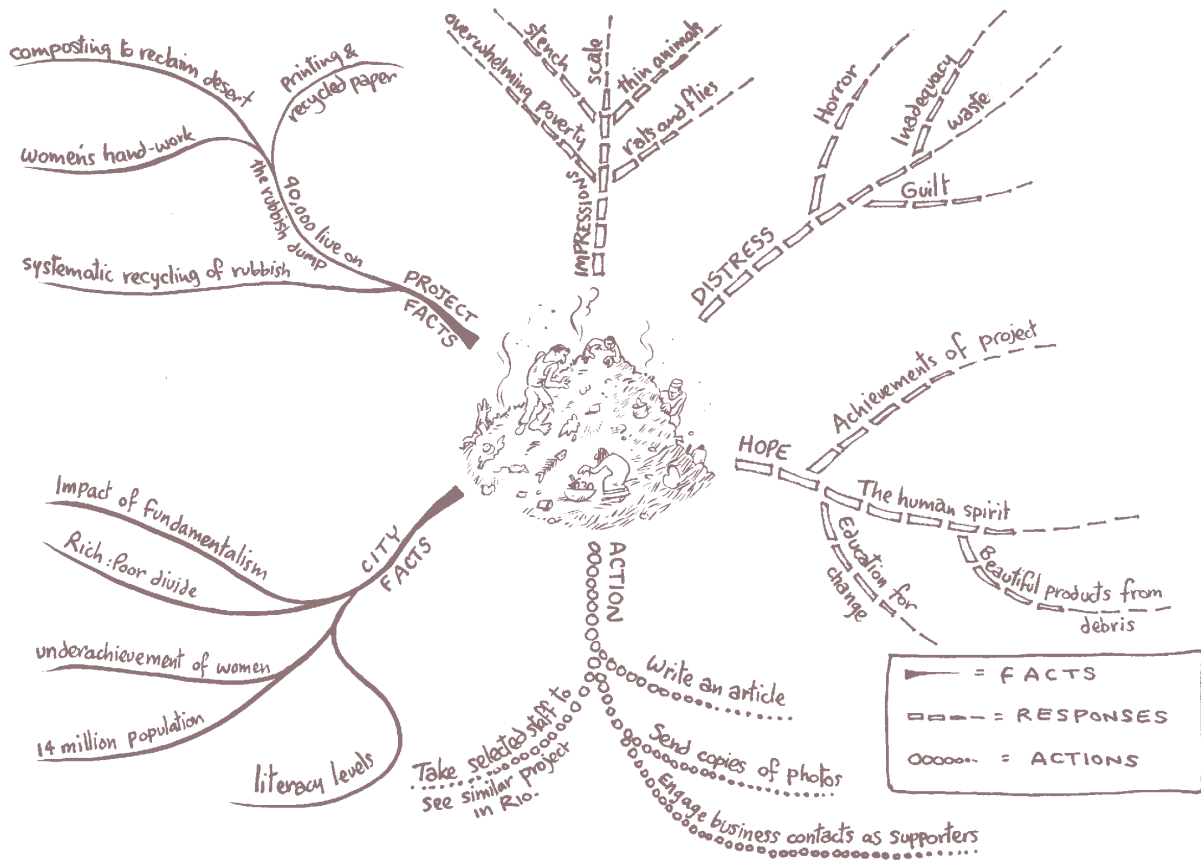 composting to reclaim desert
Printing &
recycled paper
women's hand-work
90,000 live on
the rubbish dump
systematic recycling of rubbish
PROJECT
FACTS
overwhelming poverty
stench
scale
thin animals
rats and flies
IMPRESSIONS
Horror
Inadequacy
waste
Guilt
DISTRESS
Achievements of project
HOPE
The human spirit
Education for
change
Beautiful products from
debris
Impact of fundamentalism
Rich : Poor divide
CITY
FACTS
underachievement of women
14 million population
literacy levels
ACTION
Write an article
Send copies of photos
Engage business contacts as supporters
Take selected staff to
see similar project
in Rio.
= FACTS
= RESPONSES
= ACTIONS